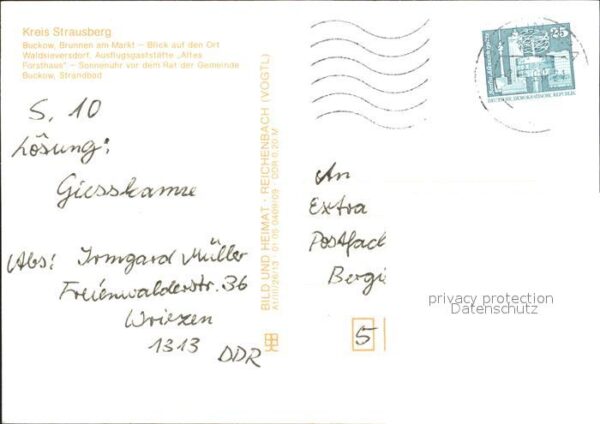 Kreis Strausberg
Buckow, Brunnen am Markt – Blick auf den Ort
Waldsieversdorf, Ausflugsgaststätte „Altes
Forsthaus" – Sonnenuhr vor dem Rat der Gemeinde
Buckow, Strandbad
S. 10
Lösung:
Giesskanne
Abs: Irmgard Müller
Freienwalderstr. 36
Wriezen
1313 DDR
BILD UND HEIMAT · REICHENBACH (VOGTL)
A1/III/26/13 01 05 0409/09 · DDR 0,20 M
25
DEUTSCHE DEMOKRATISCHE REPUBLIK
An
Extra
Postfach
Bergi
5
privacy protection
Datenschutz